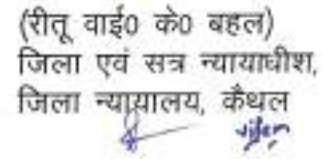 (रीतू वाई0 के0 बहल)
जिला एवं सत्र न्यायाधीश,
जिला न्यायालय, कैथल